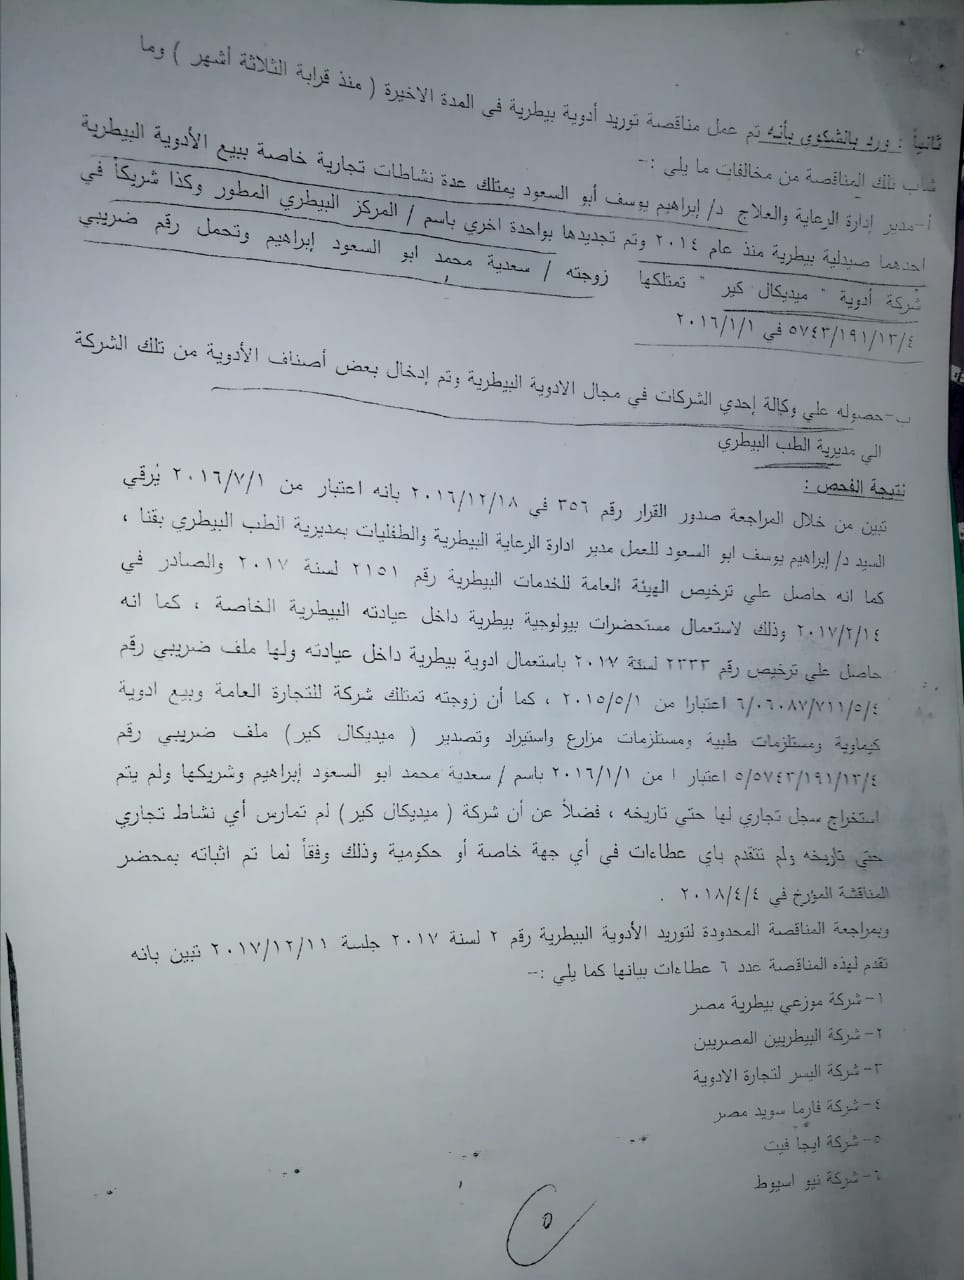 ثانياً : ورد بالشكوى بأنه تم عمل مناقصة توريد أدوية بيطرية في المدة الاخيرة ( منذ قرابة الثلاثة أشهر ) وما
شاب تلك المناقصة من مخالفات ما يلي :-
أ-مدير إدارة الرعاية والعلاج د/ إبراهيم يوسف أبو السعود يمتلك عدة نشاطات تجارية خاصة ببيع الأدوية البيطرية
احدهما صيدلية بيطرية منذ عام ٢٠١٤ وتم تجديدها بواحدة اخري باسم / المركز البيطري المطور وكذا شريكاً في
شركة أدوية " ميديكال كير " تمتلكها زوجته / سعدية محمد ابو السعود إبراهيم وتحمل رقم ضريبي
٥٧٤٣/١٩١/١٣/٤ في ٢٠١٦/١/١
ب-حصوله علي وكالة إحدي الشركات في مجال الادوية البيطرية وتم إدخال بعض أصناف الأدوية من تلك الشركة
الي مديرية الطب البيطري
نتيجة الفحص :
تبين من خلال المراجعة صدور القرار رقم ٣٥٦ في ٢٠١٦/١٢/١٨ بانه اعتبار من ٢٠١٦/٧/١ يُرقي
السيد د/ إبراهيم يوسف ابو السعود للعمل مدير ادارة الرعاية البيطرية والطفليات بمديرية الطب البيطري بقنا ،
كما انه حاصل علي ترخيص الهيئة العامة للخدمات البيطرية رقم ٢١٥١ لسنة ٢٠١٧ والصادر في
٢٠١٧/٢/١٤ وذلك لاستعمال مستحضرات بيولوجية بيطرية داخل عيادته البيطرية الخاصة ، كما انه
حاصل علي ترخيص رقم ٢٣٣٣ لسنة ٢٠١٧ باستعمال ادوية بيطرية داخل عيادته ولها ملف ضريبي رقم
٦/٠٦٠٨٧/٧١١/٥/٤ اعتبارا من ٢٠١٥/٥/١ ، كما أن زوجته تمتلك شركة للتجارة العامة وبيع ادوية
كيماوية ومستلزمات طبية ومستلزمات مزارع واستيراد وتصدير ( ميديكال كير) ملف ضريبي رقم
٥/٥٧٤٣/١٩١/١٣/٤ اعتبار ا من ٢٠١٦/١/١ باسم / سعدية محمد ابو السعود إبراهيم وشريكها ولم يتم
استخراج سجل تجاري لها حتي تاريخه ، فضلاً عن أن شركة ( ميديكال كير) لم تمارس أي نشاط تجاري
حتي تاريخه ولم تتقدم باي عطاءات في أي جهة خاصة أو حكومية وذلك وفقاً لما تم اثباته بمحضر
المناقشة المؤرخ في ٢٠١٨/٤/٤ .
وبمراجعة المناقصة المحدودة لتوريد الأدوية البيطرية رقم ٢ لسنة ٢٠١٧ جلسة ٢٠١٧/١٢/١١ تبين بانه
تقدم لهذه المناقصة عدد ٦ عطاءات بيانها كما يلي :-
١-شركة موزعي بيطرية مصر
٢-شركة البيطريين المصريين
٣-شركة اليسر لتجارة الادوية
٤-شركة فارما سويد مصر
٥-شركة ايجا فيت
٦-شركة نيو اسيوط
٥